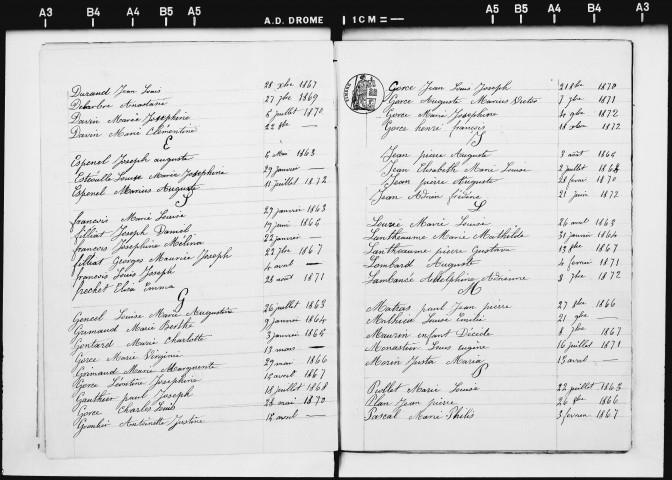 A3 B4 A4 B5 A5 A.D. DROME 1CM = A5 B5 A4 B4 A3
Durand Jean Louis 28 xbre 1867
Delarbre Anastasie 27 7bre 1869
Davin Marie Josephine 6 juillet 1870
Davin Marie Clementine 22 8bre —
E
Espenel Joseph auguste 6 Mai 1863
Estoulle Louise Marie Josephine 29 janvier —
Espenel Marius Auguste 11 juillet 1872
françois Marie Louise 29 janvier 1863
filliat Joseph Daniel 17 juin 1866
françois Josephine Mélina 22 janvier —
filliat Georges Maurice Joseph 23 7bre 1867
françois Louis Joseph 4 avril —
frechet Eliza Emma 28 août 1871
G
Goncel Louise Marie Augustine 26 juillet 1863
Grimaud Marie Berthe 9 janvier 1864
Gontard Marie Charlotte 3 janvier 1865
Gorce Marie Virginie 13 mars —
Grimaud Marie Marguerite 29 mai 1866
Gorce Léontine Josephine 15 avril 1867
Gauthier paul Joseph 18 juillet 1868
Gorce Charles Louis 28 mai 1870
Antoinette Justine avril —
Gorce Jean Louis Joseph 21 8bre 1870
Gorce Auguste Marius Victor 7 7bre 1871
Gorce Marie Josephine 4 9bre 1872
Gorce henri françois 18 xbre 1872
J
Jean pierre Auguste 3 août 1866
Jean Elisabeth Marie Louise 2 juillet 1868
Jean pierre Auguste 28 février 1870
Jean Adrien 21 juin 1872
L
Louzie Marie Louise 26 août 1863
Lantheaume Marie Mathilde 31 janvier 1864
Lantheaume pierre Gustave 13 8bre 1867
Lombard Auguste 4 février 1871
Adelphine Adrienne 3 7bre 1872
M
Matras paul Jean pierre 27 8bre 1866
Mathieu Louise Emilie 21 9bre —
Maurin enfant Décédé 8 7bre 1867
Monastier Louis Eugine 16 juillet 1871
Morin Justa Maria 13 avril —
P
Pollet Marie Louise 22 juillet 1863
Plan Jean pierre 26 8bre 1866
Pascal Marie Philis 3 fevrier 1867